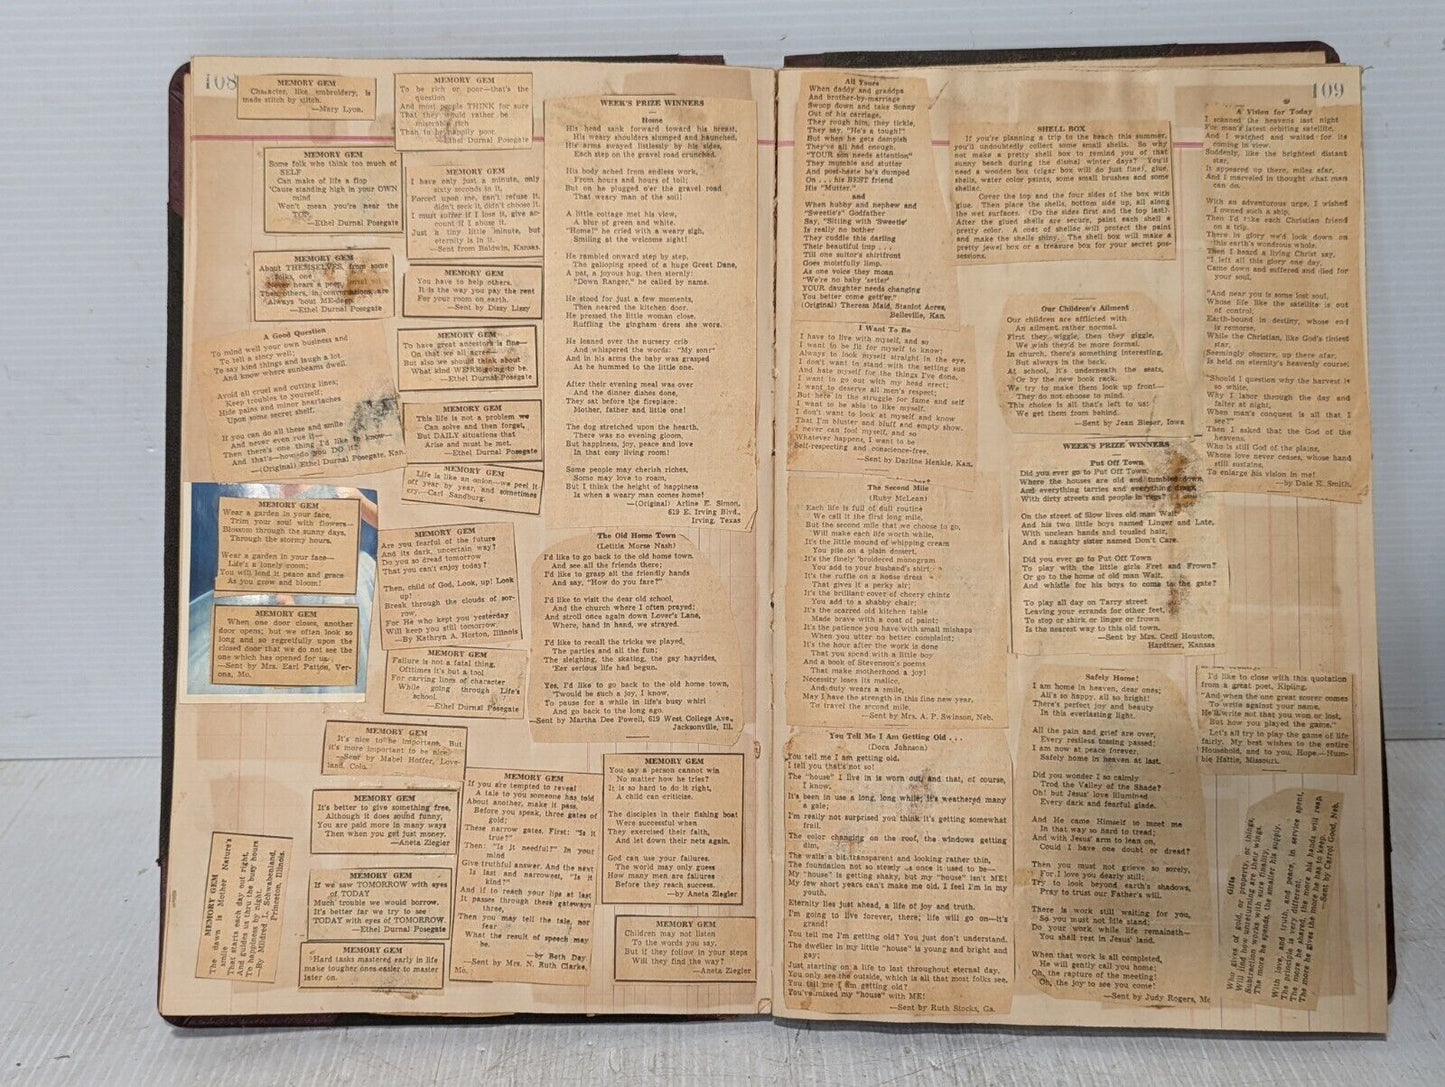 108
MEMORY GEM
Character, like embroidery, is
made stitch by stitch.
—Mary Lyon.
MEMORY GEM
To be rich or poor—that's the
question
And most people THINK for sure
That they would rather be
miserable rich
Than to be happily poor.
—Ethel Durnal Posegate
MEMORY GEM
Some folk who think too much of
SELF
Can make of life a flop
'Cause standing high in your OWN
mind
Won't mean you're near the
TOP.
—Ethel Durnal Posegate
MEMORY GEM
I have only just a minute, only
sixty seconds in it,
Forced upon me, can't refuse it,
didn't seek it, didn't choose it.
I must suffer if I lose it, give ac-
count if I abuse it.
Just a tiny little minute, but
eternity is in it.
—Sent from Baldwin, Kansas.
MEMORY GEM
About THEMSELVES, from some
folks, one
Never hears a peep,
Then others, in conversations, are
Always 'bout ME-deep.
—Ethel Durnal Posegate
MEMORY GEM
You have to help others.
It is the way you pay the rent
For your room on earth.
—Sent by Dizzy Lizzy
A Good Question
To mind well your own business and
To tell a story well;
To say kind things and laugh a lot
And know where sunbeams dwell.
Avoid all cruel and cutting lines;
Keep troubles to yourself;
Hide pains and minor heartaches
Upon some secret shelf.
If you can do all these and smile
And never even rue it—
Then there's one thing I'd like to know—
And that's—how do you DO it?
—(Original) Ethel Durnal Posegate, Kan.
MEMORY GEM
To have great ancestors is fine—
On that we all agree—
But also we should think about
What kind WE'RE going to be.
—Ethel Durnal Posegate
MEMORY GEM
This life is not a problem we
Can solve and then forget,
But DAILY situations that
Arise and must be met.
—Ethel Durnal Posegate
MEMORY GEM
Life is like an onion—we peel it
off year by year, and sometimes
cry.—Carl Sandburg.
MEMORY GEM
Wear a garden in your face,
Trim your soul with flowers—
Blossom through the sunny days,
Through the stormy hours.
Wear a garden in your face—
Life's a lonely room;
You will lend it peace and grace
As you grow and bloom!
MEMORY GEM
When one door closes, another
door opens; but we often look so
long and so regretfully upon the
closed door that we do not see the
one which has opened for us.
—Sent by Mrs. Earl Patton, Ver-
ona, Mo.
MEMORY GEM
Are you fearful of the future
And its dark, uncertain way?
Do you so dread tomorrow
That you can't enjoy today?
Then, child of God, Look, up! Look
up!
Break through the clouds of sor-
row,
For He who kept you yesterday
Will keep you still tomorrow.
—By Kathryn A. Horton, Illinois
MEMORY GEM
Failure is not a fatal thing,
Ofttimes it's but a tool
For carving lines of character
While going through Life's
school.
—Ethel Durnal Posegate
MEMORY GEM
It's nice to be important, But
it's more important to be nice.
—Sent by Mabel Hoffer, Love-
land, Colo.
MEMORY GEM
It's better to give something free,
Although it does sound funny,
You are paid more in many ways
Then when you get just money.
—Aneta Ziegler
MEMORY GEM
If we saw TOMORROW with eyes
of TODAY
Much trouble we would borrow.
It's better far we try to see
TODAY with eyes of TOMORROW.
—Ethel Durnal Posegate
MEMORY GEM
Hard tasks mastered early in life
make tougher ones easier to master
later on.
MEMORY GEM
The dawn is Mother Nature's
smile
That starts each day out right,
And guides us thru the busy hours
To happiness by night.
—By Mildred J. Schwabenland,
Princeton, Illinois.
MEMORY GEM
If you are tempted to reveal
A tale to you someone has told
About another, make it pass,
Before you speak, three gates of
gold;
These narrow gates. First: "Is it
true?"
Then: "Is it needful?" In your
mind
Give truthful answer. And the next
Is last and narrowest, "Is it
kind?"
And if to reach your lips at last
It passes through these gateways
three,
Then you may tell the tale, nor
fear
What the result of speech may
be.
—by Beth Day
—Sent by Mrs. N. Ruth Clarke,
Mo.
MEMORY GEM
You say a person cannot win
No matter how he tries?
It is so hard to do it right,
A child can criticize.
The disciples in their fishing boat
Were successful when
They exercised their faith,
And let down their nets again.
God can use your failures.
The world may only guess
How many men are failures
Before they reach success.
—by Aneta Ziegler
MEMORY GEM
Children may not listen
To the words you say,
But if they follow in your steps
Will they find the way?
—Aneta Ziegler
WEEK'S PRIZE WINNERS
Home
His head sank forward toward his breast,
His weary shoulders slumped and haunched,
His arms swayed listlessly by his sides,
Each step on the gravel road crunched.
His body ached from endless work,
From hours and hours of toil;
But on he plugged o'er the gravel road
That weary man of the soil!
A little cottage met his view,
A blur of green and white.
"Home!" he cried with a weary sigh,
Smiling at the welcome sight!
He rambled onward step by step,
The galloping speed of a huge Great Dane,
A pat, a joyous hug, then sternly:
"Down Ranger," he called by name.
He stood for just a few moments,
Then neared the kitchen door.
He pressed the little woman close,
Ruffling the gingham dress she wore.
He leaned over the nursery crib
And whispered the words: "My son!"
And in his arms the baby was grasped
As he hummed to the little one.
After their evening meal was over
And the dinner dishes done,
They sat before the fireplace:
Mother, father and little one!
The dog stretched upon the hearth,
There was no evening gloom,
But happiness, joy, peace and love
In that cosy living room!
Some people may cherish riches,
Some may love to roam,
But I think the height of happiness
Is when a weary man comes home!
—(Original) Arline E. Simon,
619 E. Irving Blvd.,
Irving, Texas
The Old Home Town
(Letitia Morse Nash)
I'd like to go back to the old home town.
And see all the friends there;
I'd like to grasp all the friendly hands
And say, "How do you fare?"
I'd like to visit the dear old school,
And the church where I often prayed;
And stroll once again down Lover's Lane,
Where, hand in hand, we strayed.
I'd like to recall the tricks we played,
The parties and all the fun;
The sleighing, the skating, the gay hayrides,
'Eer serious life had begun.
Yes, I'd like to go back to the old home town,
'Twould be such a joy, I know,
To pause for a while in life's busy whirl
And go back to the long ago.
—Sent by Martha Dee Powell, 619 West College Ave.,
Jacksonville, Ill.
109
All Yours
When daddy and grandpa
And brother-by-marriage
Swoop down and take Sonny
Out of his carriage,
They rough him, they tickle,
They say, "He's a tough!"
But when he gets dampish
They've all had enough.
"YOUR son needs attention"
They mumble and stutter
And post-haste he's dumped
On . . . his BEST friend
His "Mutter."
and
When hubby and nephew and
"Sweetie's" Godfather
Say, "Sitting with 'Sweetie'
Is really no bother
They cuddle this darling
Their beautiful imp . . .
Till one suitor's shirtfront
Goes moistfully limp.
As one voice they moan
"We're no baby 'setter'
YOUR daughter needs changing
You better come gett'er."
(Original) Theresa Maid, Stanlot Acres,
Belleville, Kan.
I Want To Be
I have to live with myself, and so
I want to be fit for myself to know;
Always to look myself straight in the eye.
I don't want to stand with the setting sun
And hate myself for the things I've done.
I want to go out with my head erect;
I want to deserve all men's respect;
But here in the struggle for fame and self
I want to be able to like myself.
I don't want to look at myself and know
That I'm bluster and bluff and empty show.
I never can fool myself, and so
Whatever happens, I want to be
Self-respecting and conscience-free.
—Sent by Darline Henkle, Kan.
The Second Mile
(Ruby McLean)
Each life is full of dull routine
We call it the first long mile,
But the second mile that we choose to go,
Will make each life worth while,
It's the little mound of whipping cream
You pile on a plain dessert,
It's the finely 'broidered monogram
You add to your husband's shirt;
It's the ruffle on a house dress
That gives it a perky air;
It's the brilliant cover of cheery chintz
You add to a shabby chair;
It's the scarred old kitchen table
Made brave with a coat of paint;
It's the patience you have with small mishaps
When you utter no better complaint;
It's the hour after the work is done
That you spend with a little boy
And a book of Stevenson's poems
That make motherhood a joy!
Necessity loses its malice,
And duty wears a smile,
May I have the strength in this fine new year,
To travel the second mile.
—Sent by Mrs. A. P. Swinson, Neb.
You Tell Me I Am Getting Old . . .
(Dora Johnson)
You tell me I am getting old.
I tell you that's not so!
The "house" I live in is worn out, and that, of course,
I know.
It's been in use a long, long while; it's weathered many
a gale;
I'm really not surprised you think it's getting somewhat
frail.
The color changing on the roof, the windows getting
dim,
The walls a bit transparent and looking rather thin,
The foundation not so steady as once it used to be—
My "house" is getting shaky, but my "house" isn't ME!
My few short years can't make me old. I feel I'm in my
youth.
Eternity lies just ahead, a life of joy and truth.
I'm going to live forever, there; life will go on—it's
grand!
You tell me I'm getting old? You just don't understand.
The dweller in my little "house" is young and bright and
gay;
Just starting on a life to last throughout eternal day.
You only see the outside, which is all that most folks see.
You tell me I am getting old?
You've mixed my "house" with ME!
—Sent by Ruth Stocks, Ga.
SHELL BOX
If you're planning a trip to the beach this summer,
you'll undoubtedly collect some small shells. So why
not make a pretty shell box to remind you of that
sunny beach during the dismal winter days? You'll
need a wooden box (cigar box will do just fine), glue,
shells, water color paints, some small brushes and some
shellac.
Cover the top and the four sides of the box with
glue. Then place the shells, bottom side up, all along
the wet surfaces. (Do the sides first and the top last).
After the glued shells are secure, paint each shell a
pretty color. A coat of shellac will protect the paint
and make the shells shiny. The shell box will make a
pretty jewel box or a treasure box for your secret pos-
sessions.
Our Children's Ailment
Our children are afflicted with
An ailment rather normal.
First they wiggle, then they giggle,
We wish they'd be more formal.
In church, there's something interesting,
But always in the back.
At school, it's underneath the seats,
Or by the new book rack.
We try to make them look up front—
They do not choose to mind.
This choice is all that's left to us:
We get them from behind.
—Sent by Jean Bieser, Iowa
WEEK'S PRIZE WINNERS
Put Off Town
Did you ever go to Put Off Town,
Where the houses are old and tumbled down,
And everything tarries and everything drags,
With dirty streets and people in rags?
On the street of Slow lives old man Wait
And his two little boys named Linger and Late,
With unclean hands and tousled hair,
And a naughty sister named Don't Care.
Did you ever go to Put Off Town
To play with the little girls Fret and Frown?
Or go to the home of old man Wait,
And whistle for his boys to come to the gate?
To play all day on Tarry street
Leaving your errands for other feet,
To stop or shirk or linger or frown
Is the nearest way to this old town.
—Sent by Mrs. Cecil Houston,
Hardtner, Kansas
Safely Home!
I am home in heaven, dear ones;
All's so happy, all so bright!
There's perfect joy and beauty
In this everlasting light.
All the pain and grief are over,
Every restless tossing passed;
I am now at peace forever,
Safely home in heaven at last.
Did you wonder I so calmly
Trod the Valley of the Shade?
Oh! but Jesus' love illumined
Every dark and fearful glade.
And He came Himself to meet me
In that way so hard to tread;
And with Jesus' arm to lean on,
Could I have one doubt or dread?
Then you must not grieve so sorely,
For I love you dearly still;
Try to look beyond earth's shadows,
Pray to trust our Father's will.
There is work still waiting for you,
So you must not idle stand;
Do your work while life remaineth—
You shall rest in Jesus' land.
When that work is all completed,
He will gently call you home;
Oh, the rapture of the meeting!
Oh, the joy to see you come!
—Sent by Judy Rogers, Mo
A Vision for Today
I scanned the heavens last night
For man's latest orbiting satellite,
And I watched and waited for its
coming in view.
Suddenly, like the brightest distant
star,
It appeared up there, miles afar,
And I marveled in thought what man
can do.
With an adventurous urge, I wished
I owned such a ship,
Then I'd take each Christian friend
on a trip.
There in glory we'd look down on
this earth's wondrous whole.
Then I heard a living Christ say,
"I left all this glory one day,
Came down and suffered and died for
your soul.
"And near you is some lost soul,
Whose life like the satellite is out
of control.
Earth-bound in destiny, whose end
is remorse,
While the Christian, like God's tiniest
star,
Seemingly obscure, up there afar,
Is held on eternity's heavenly course.
"Should I question why the harvest is
so white,
Why I labor through the day and
falter at night,
When man's conquest is all that I
see?"
Then I asked that the God of the
heavens,
Who is still God of the plains,
Whose love never ceases, whose hand
still sustains,
To enlarge his vision in me!
—by Dale E. Smith.
I'd like to close with this quotation
from a great poet, Kipling.
"And when the one great scorer comes
To write against your name,
He'll write not that you won or lost,
But how you played the game."
Let's all try to play the game of life
fairly. My best wishes to the entire
Household, and to you, Hope.—Hum-
ble Hattie, Missouri.
Gifts
Who gives of gold, or property, or things,
Will find how unreturning are their wings.
Subtraction works with sure finality,
The more he spends, the smaller his supply.
With love, and truth, and peace, in service spent,
The principle is very different.
The more he shared, the more his hands will reap,
The more he gives the more he has to keep.
—Sent by Carrol Good, Neb.